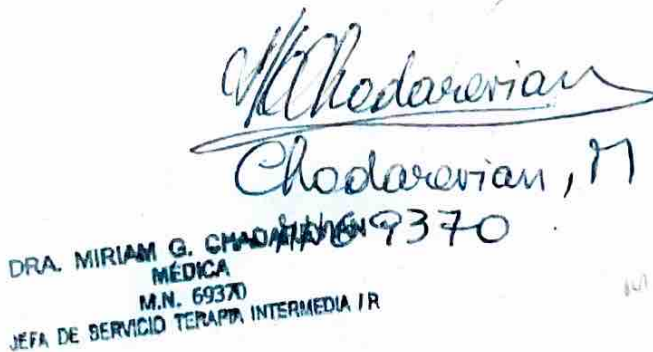 MChodarevian
Chodarevian, M
MN 69370
DRA. MIRIAM G. CHADAREVIAN
MÉDICA
M.N. 69370
JEFA DE SERVICIO TERAPIA INTERMEDIA / R